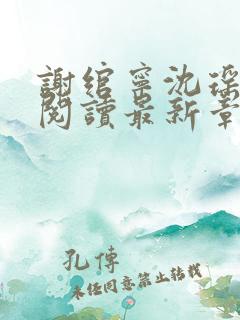 謝綰寧沈瑶
閱讀最新章
孔傳
未经同意禁止转载